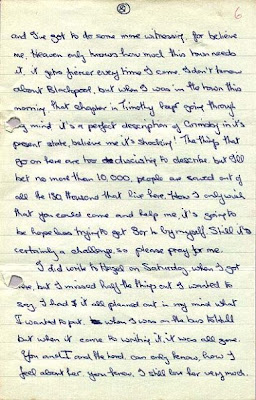 ⑧
6
and I've got to do some more witnessing, for believe
me, Heaven only knows how much this town needs
it, it gets fiercer every time I come. I don't know
about Blackpool, but when I was in the town this
morning that chapter in Timothy kept going through
my mind it's a perfect description of Grimsby in it's
present state, believe me it's shocking! The things that
go on here are too to describe but I'll
bet no more than 10,000 people are saved out of
all the 130 thousand that live here. How I only wish
that you could come and help me, it's going to
be hopeless trying to get 80% in by myself. Still it's
certainly a challenge, so please pray for me.
I did write to on Saturday when I got
here, but I missed half the things out I wanted to
say. I had it all planned out in my mind what
I wanted to put. when I was on the bus to Hull
but when it came to writing it, it was all gone.
You and I and the Lord, can only know, how I
feel about her you know, I still love her very much.